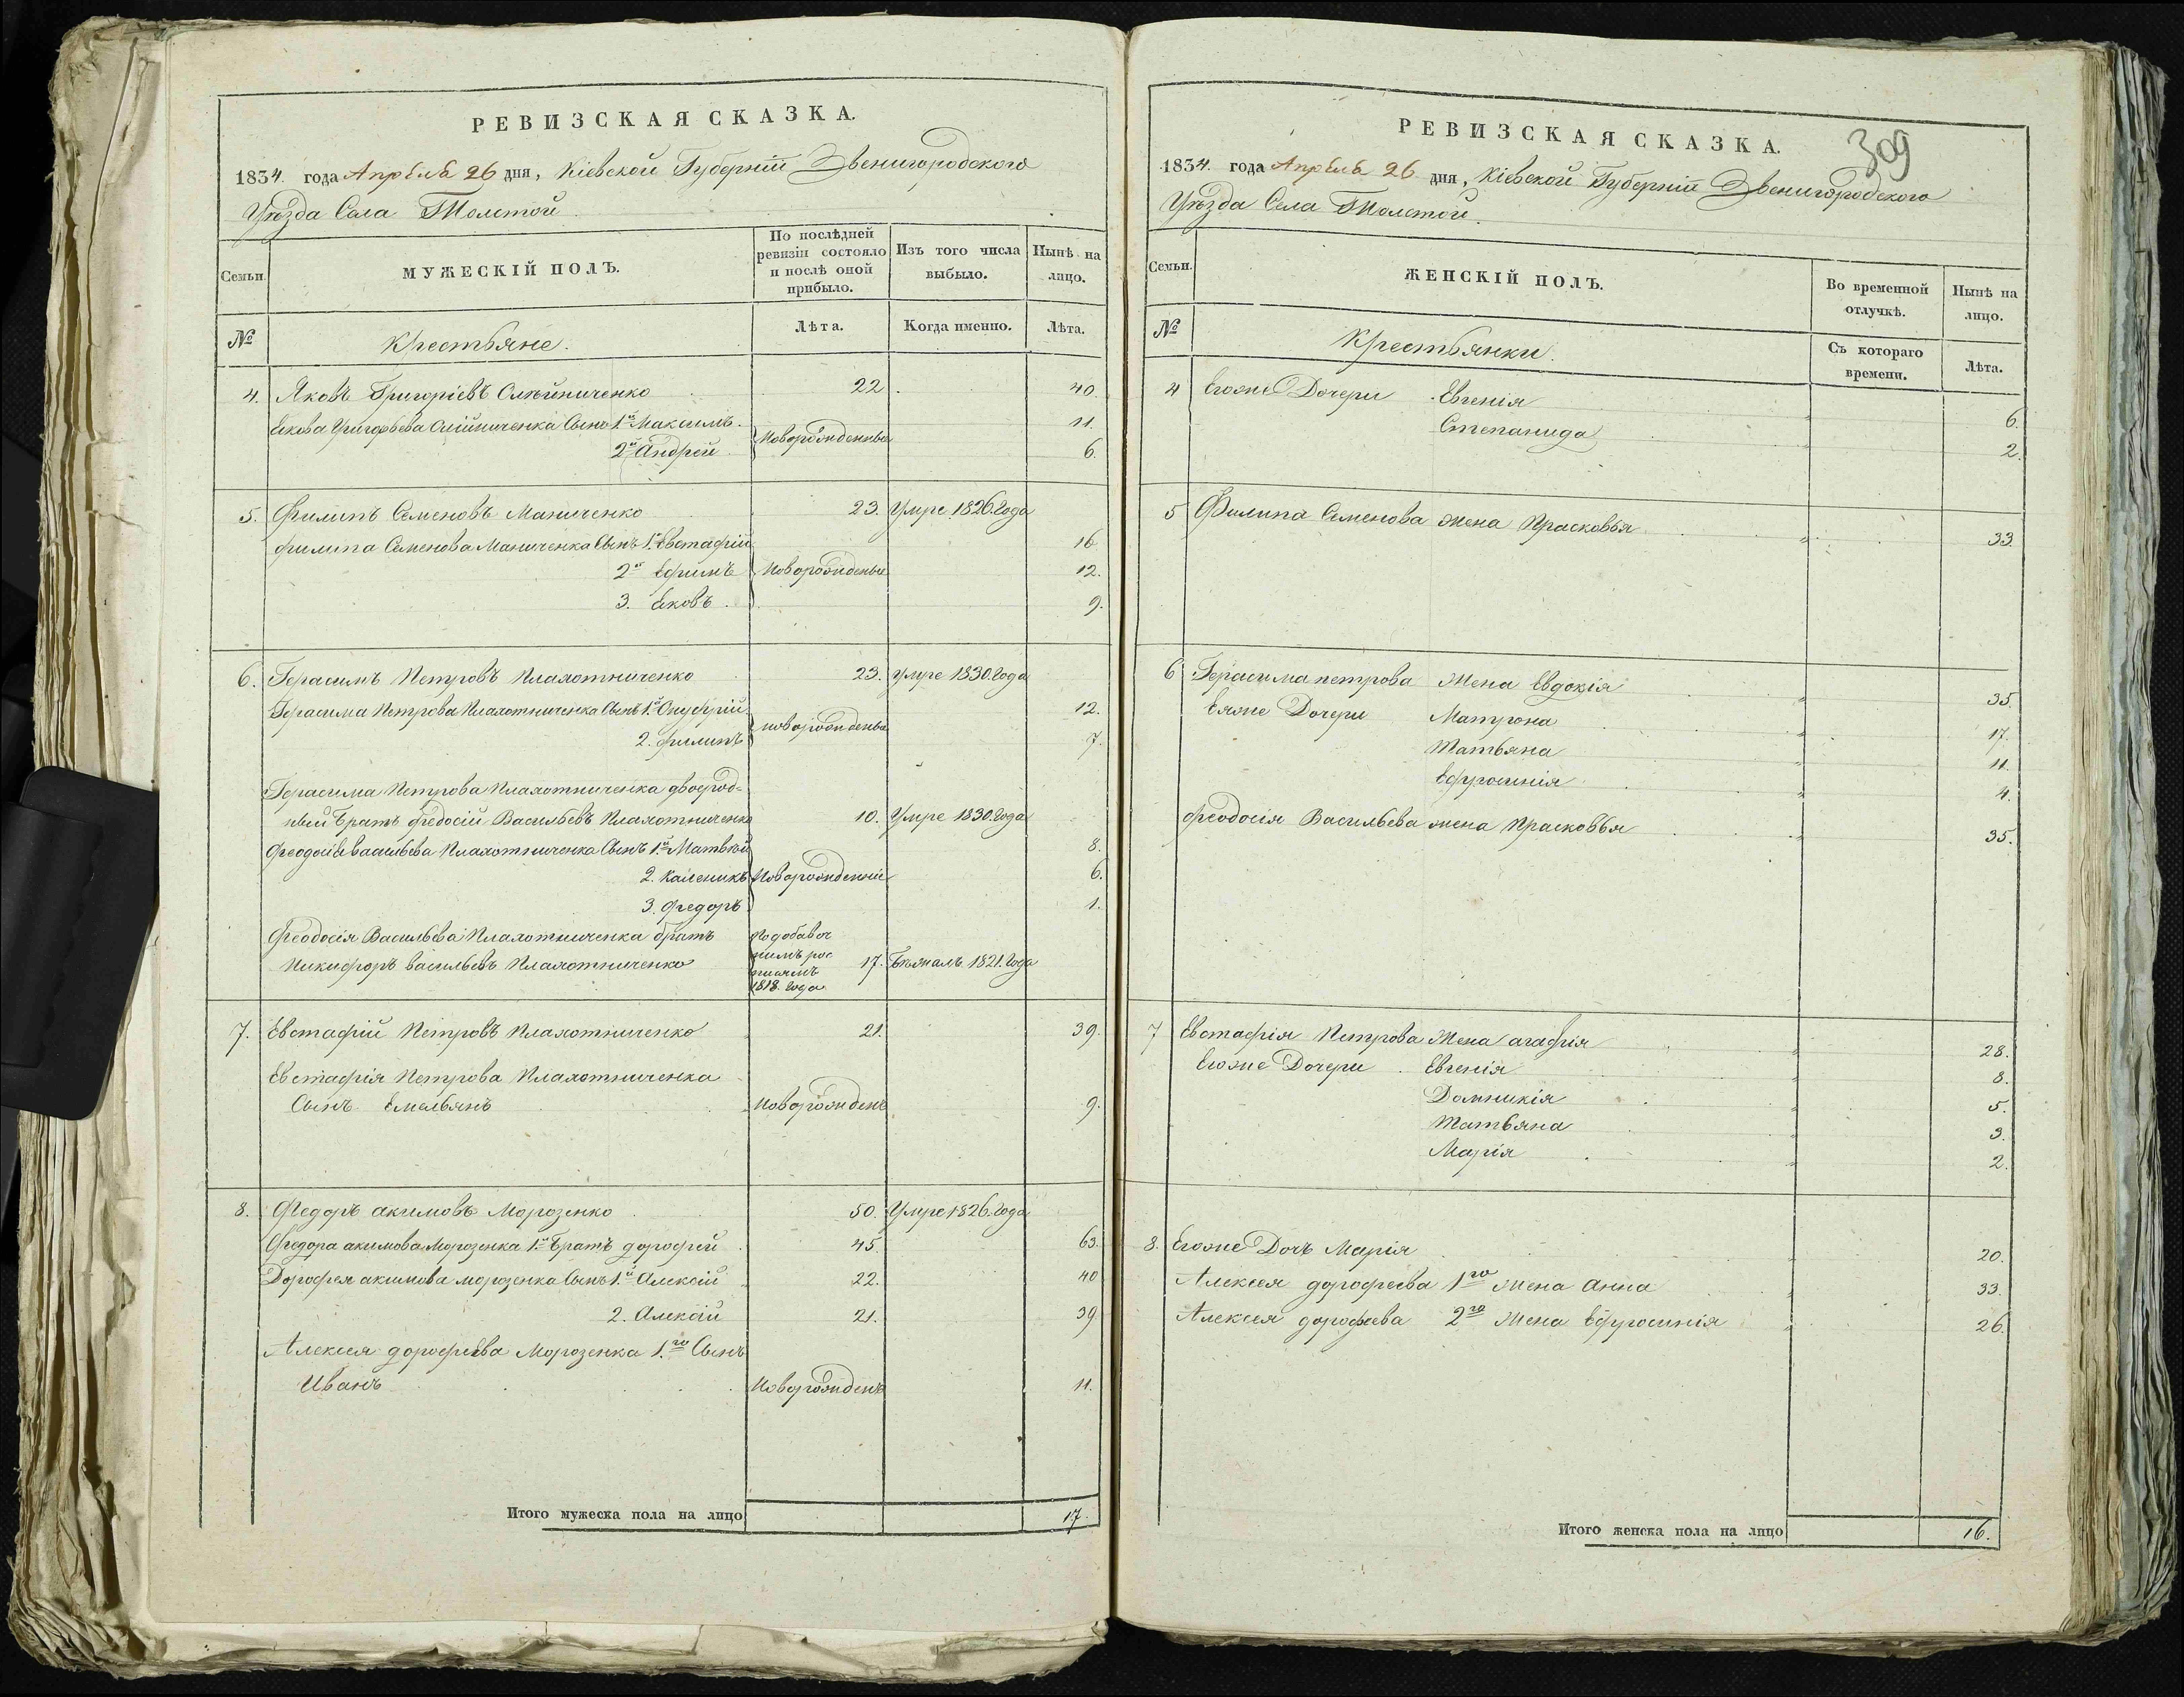 РЕВИЗСКАЯ СКАЗКА.
1834. года Апрѣля 26 дня, Кіевской Губерніи Звенигородскаго
Уѣзда Села Толстой
Семьи.
МУЖЕСКІЙ ПОЛЪ.
По послѣдней ревизіи состояло и послѣ оной прибыло.
Изъ того числа выбыло.
Нынѣ на лицо.
№
Крестьяне.
Лѣта.
Когда именно.
Лѣта.
4. Яковъ Григоріевъ Олѣйниченко 22 40.
Якова Григорьева Олѣйниченка Сыно 1й Максимъ. Новорожденные 11.
2й Андрей 6.
5. Филипъ Семеновъ Маниченко 23. Умре 1826. Года
Филипа Семенова Маниченка Сынъ 1й Евстафій 16
2й Ефимъ Новорожденые 12.
3. Яковъ 9.
6. Герасимъ Петровъ Плахотниченко 23. Умре 1830. Года
Герасима Петрова Плахотниченка Сынъ 1й Онуфрій новорожденые 12.
2. Филипъ 7.
Герасима Петрова Плахотниченка двоюрод=
ный Братъ Федосій Васильевъ Плахотниченко 10. Умре 1830. Года
Феодосія васильева Плахотниченка Сынъ 1й Матвѣй 8.
2. Каленикъ Новорожденные 6.
3. Федоръ 1.
Феодосія Васильева Плахотниченка братъ
Никифоръ васильевъ Плахотниченко 17. Бѣжалъ 1821. Года
1818. Года
7. Евстафій Петровъ Плахотниченко 21. 39.
Евстафія Петрова Плахотниченка
Сынъ Емельянъ Новорожденъ 9.
8. Федоръ акимовъ Морозенко 50. Умре 1826. Года
Федора акимова Морозенка 1й Братъ дорофей 45. 63.
Дорофея акимова морозенка Сынъ 1й Алексій 22. 40
2. Алексій 21. 39
Алексея дорофеева Морозенка 1го Сынъ
Иванъ Новорожденъ 11.
Итого мужеска пола на лицо 17.
309
РЕВИЗСКАЯ СКАЗКА.
1834. года Апрѣля 26 дня, Кіевской Губерніи Звенигородскаго
Уѣзда Села Толстой.
Семьи.
ЖЕНСКІЙ ПОЛЪ.
Во временной отлучкѣ.
Нынѣ на лицо.
№
Крестьянки.
Съ котораго времени.
Лѣта.
4 Егоже Дочери Евгенія 6.
Степанида 2.
5 Филипа Семенова жена Прасковья 33.
6 Герасима петрова Жена Евдокія 35.
Еяже Дочери Матрона 17.
Татьяна 11.
Ефросинія 4.
Феодосія Васильева жена Прасковья 35.
7 Евстафія Петрова Жена агафія 28.
Егоже Дочери Евгенія 8.
Домникія 5.
Татьяна 3.
Марія 2.
8. Егоже Дочь Марія 20.
Алексея дорофеева 1го Жена Анна 33.
Алексея дорофеева 2го Жена Ефросинія 26.
Итого женска пола на лицо 16.